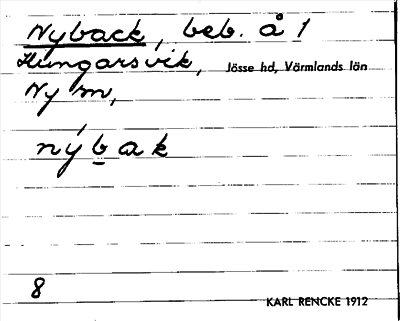 Nyback, beb. å 1
Hungarsvik, Jösse hd, Värmlands län
Ny sn,
nýb̲ak
8
KARL RENCKE 1912